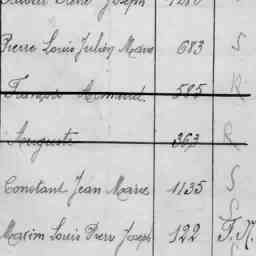 René Joseph 1280
Pierre Louis Julien Marie 683 S
François Armand 585 R
Auguste 363 R
Constant Jean Marie 1135 S
Maxim Louis Pierre Joseph 122 F.M.